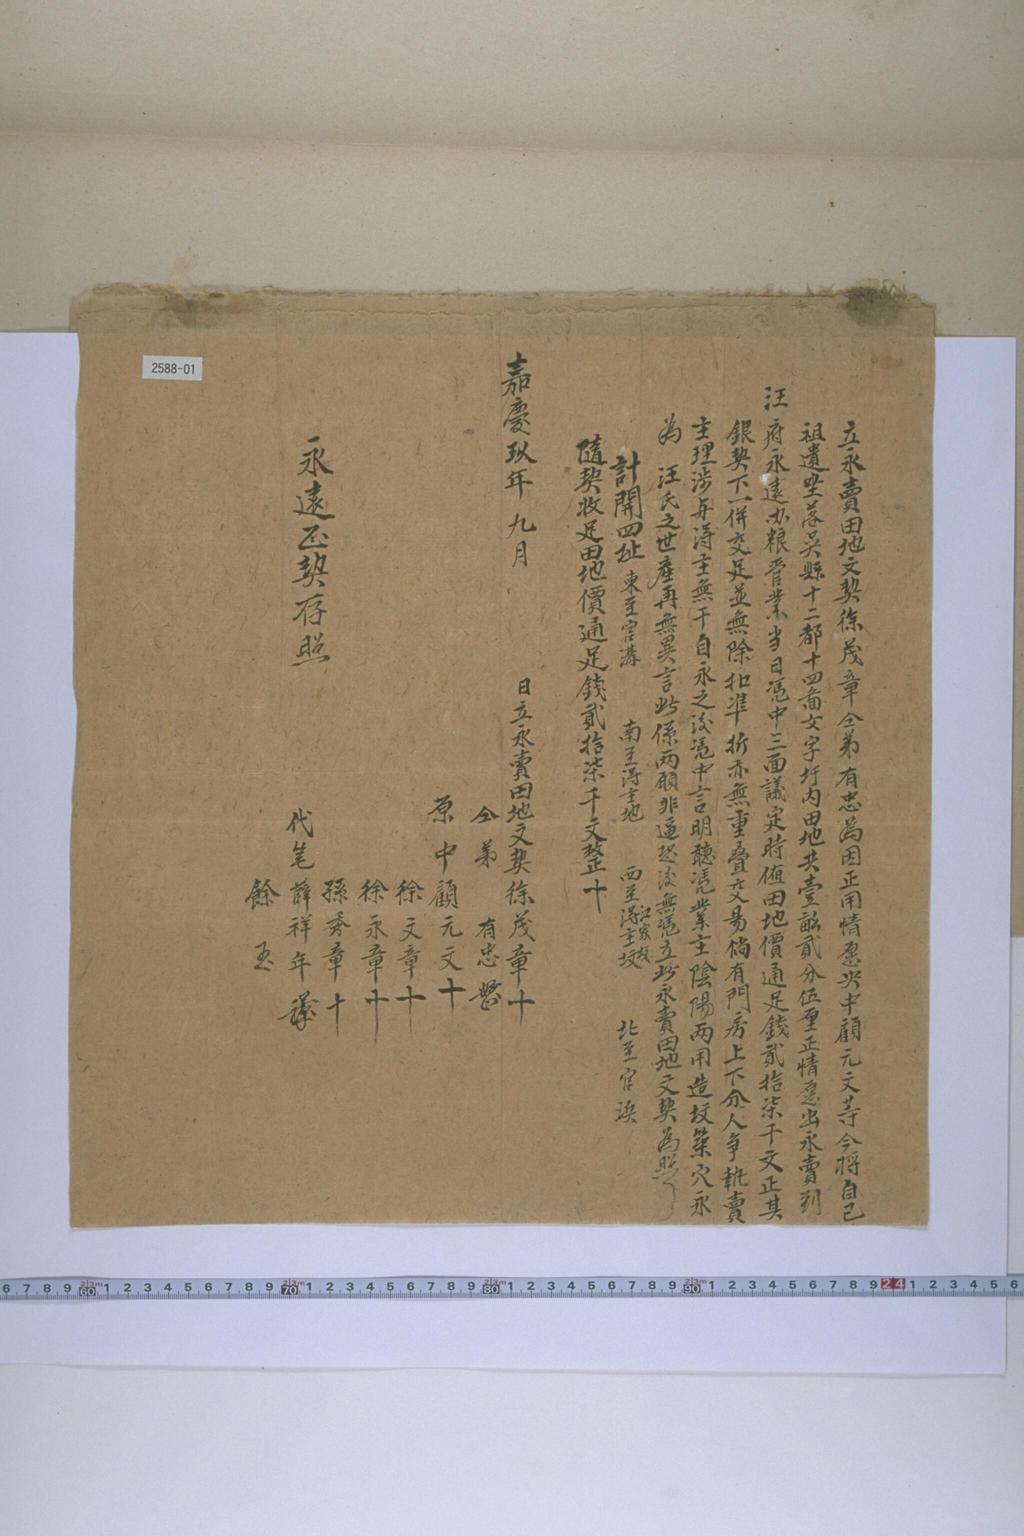 立永賣田地文契徐茂章仝弟有忠為因正用情愿央中顧元文等今將自己
祖遺坐落吳縣十二都十四啚女字圩内田地共壹畝貳分伍厘正情愿出永賣到
汪府永遠办粮管業当日憑中三面議定時値田地價通足錢貳拾柒千文正其
銀契下一併交足並無除扣準折亦無重叠交易倘有門房上下分人爭執賣
主理涉与得主無干自永之後憑中言明聽凭業主陰陽兩用造坟築穴永
為 汪氏之世産再無異言此係兩願非逼恐後無憑立此永賣田地文契為照
計開四址 東至官溝 南至得主地 西至得主坟 江家坟 北至官浜
隨契收足田地價通足錢貳拾柒千文整十
嘉慶玖年九月 日立永賣田地文契徐茂章十
仝弟 有忠
原中顧元文十
徐文章十
徐永章十
孫秀章十
代笔薛祥年
永遠正契存照
餘玉
2588-01